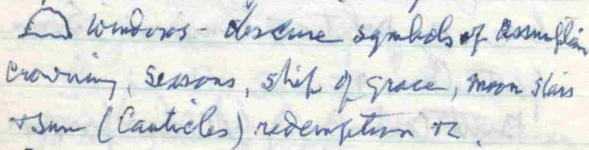 windows - obscure symbols of Assumption
Crowning, seasons, ship of grace, moon stars
+ sun (Canticles) redemption etc.